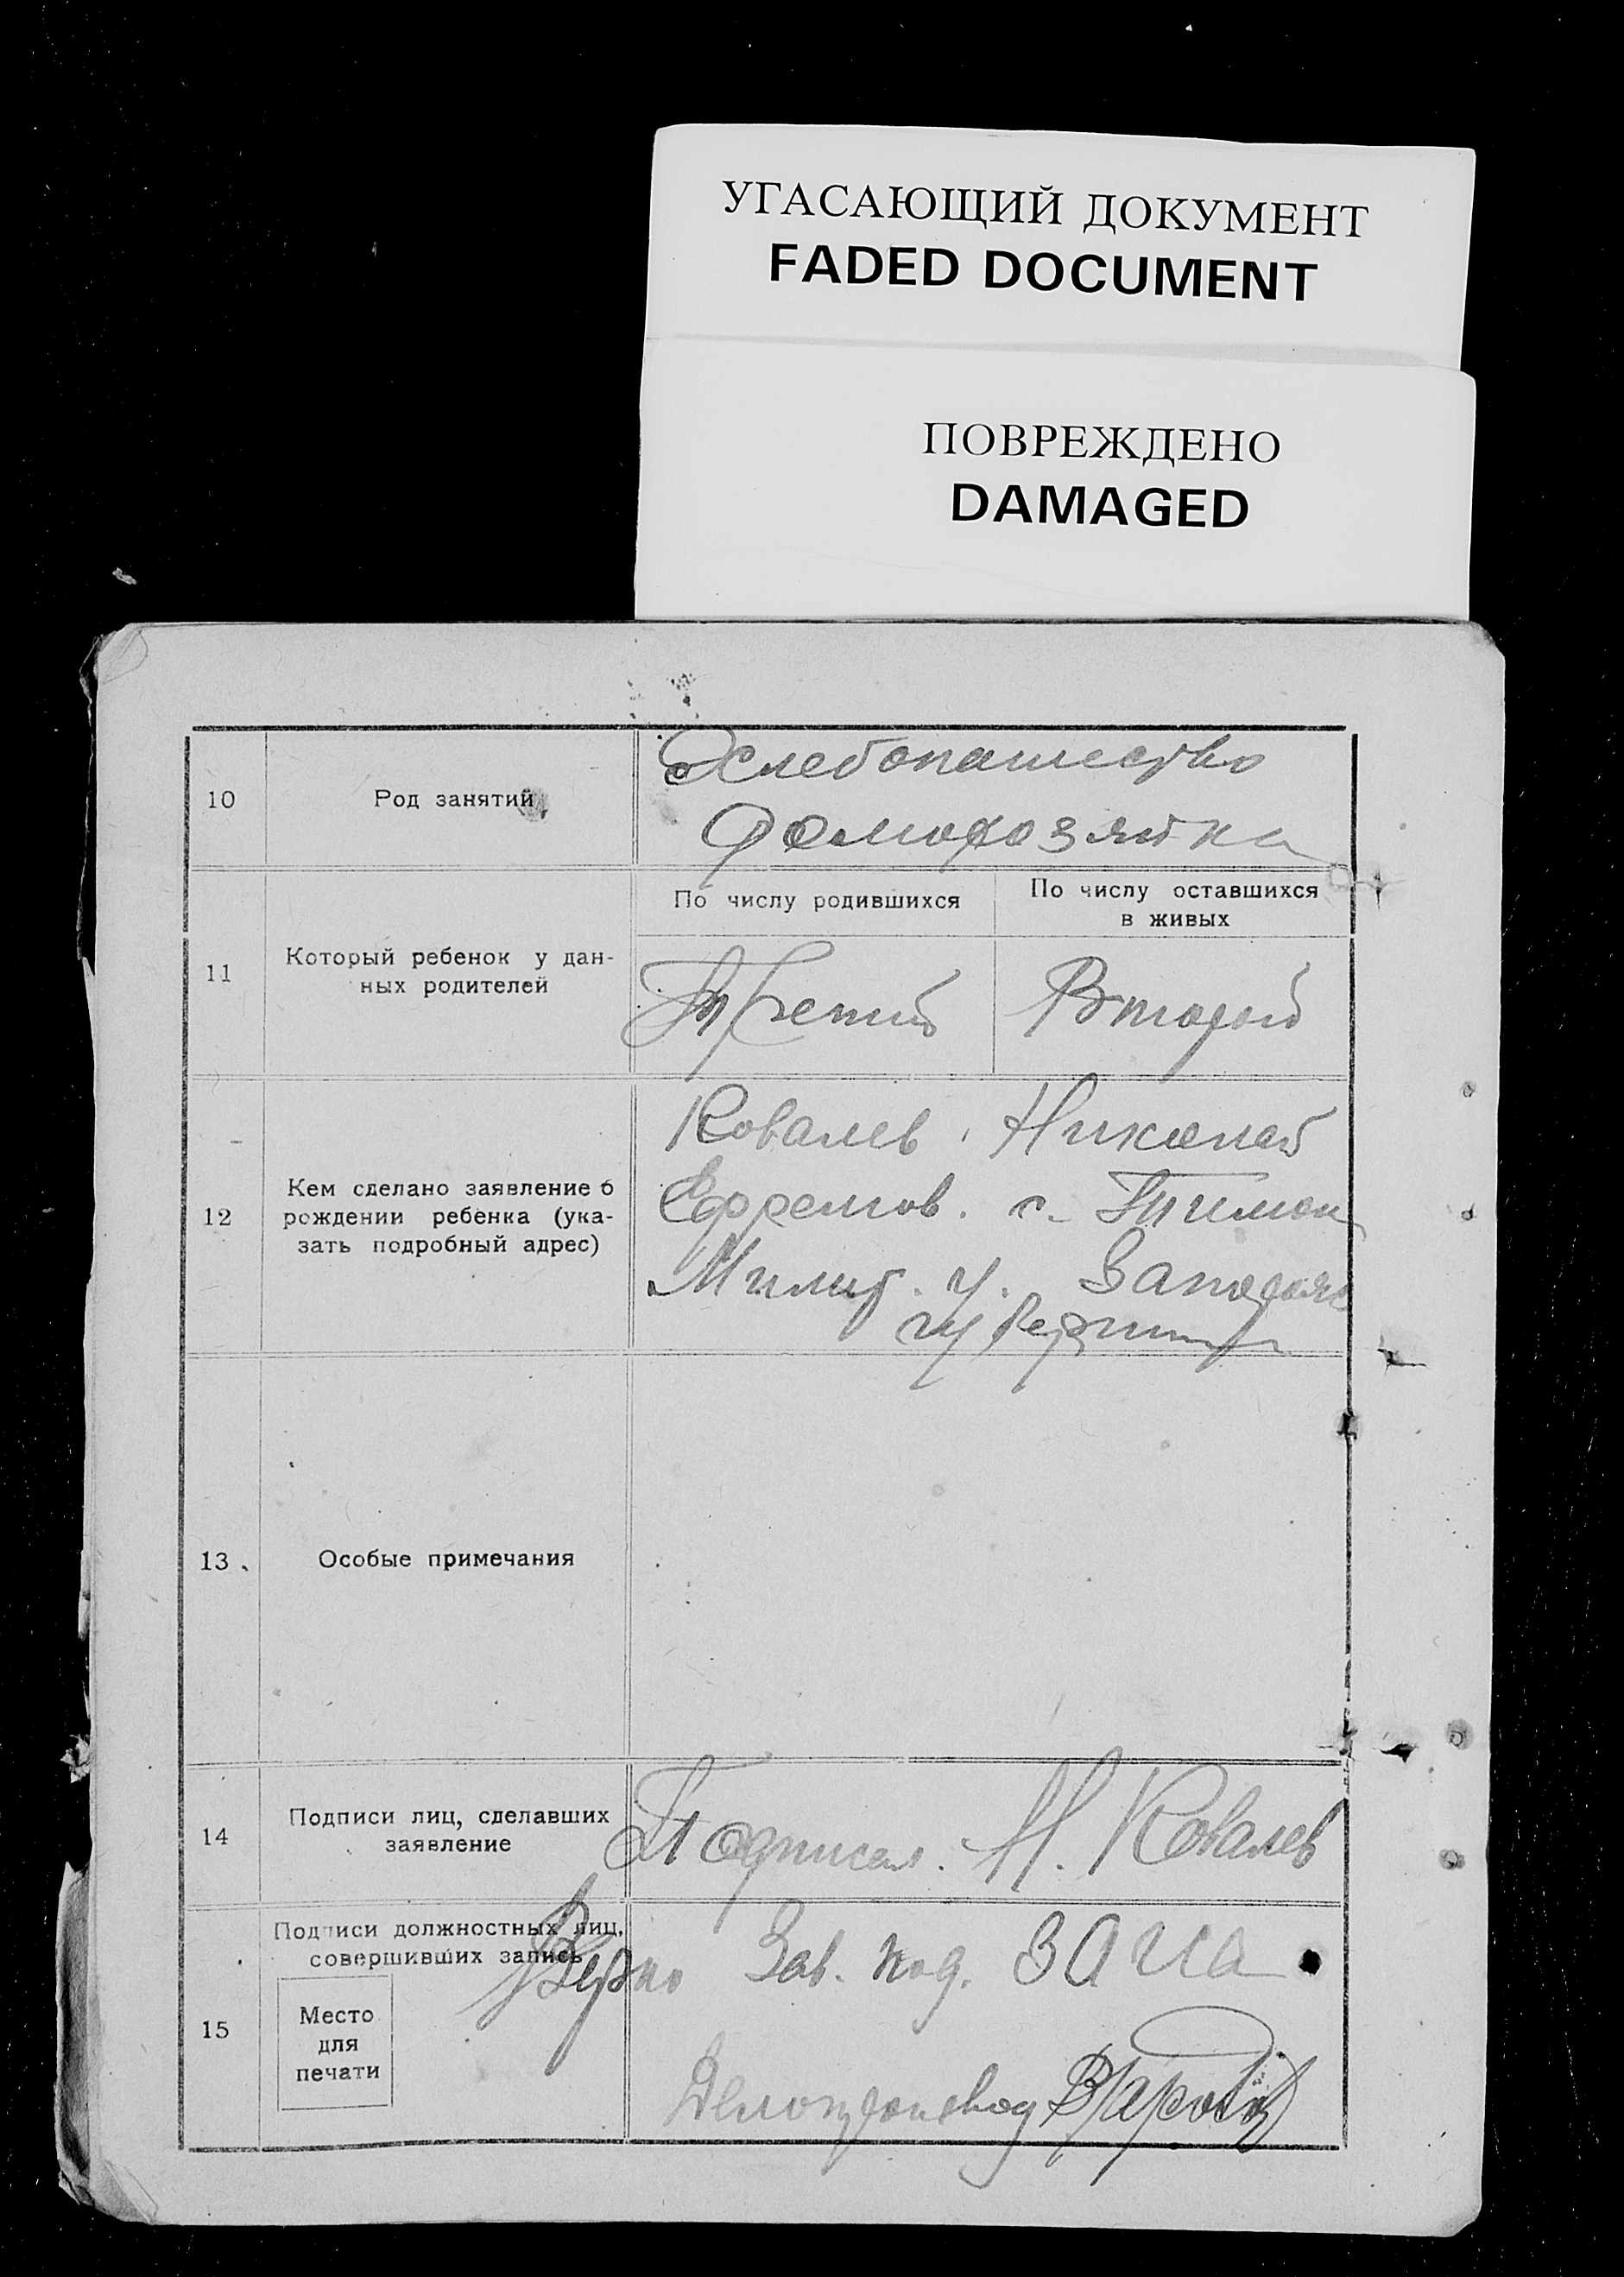 УГАСАЮЩИЙ ДОКУМЕНТ
FADED DOCUMENT
ПОВРЕЖДЕНО
DAMAGED
10
Род занятий
Хлебопашество
Домохозяйка
11
Который ребенок у дан-
ных родителей
По числу родившихся
По числу оставшихся
в живых
Третий
Второй
12
Кем сделано заявление о
рождении ребенка (ука-
зать подробный адрес)
Ковалев Николай
Ефремов. с. Тимош
Милит. у. Запорож
губернии
13
Особые примечания
14
Подписи лиц, сделавших
заявление
Подписал. Н. Ковалев
15
Подписи должностных лиц,
совершивших запись
Место
для
печати
Верно Зав. под. ЗАГСа
Делопроизвод